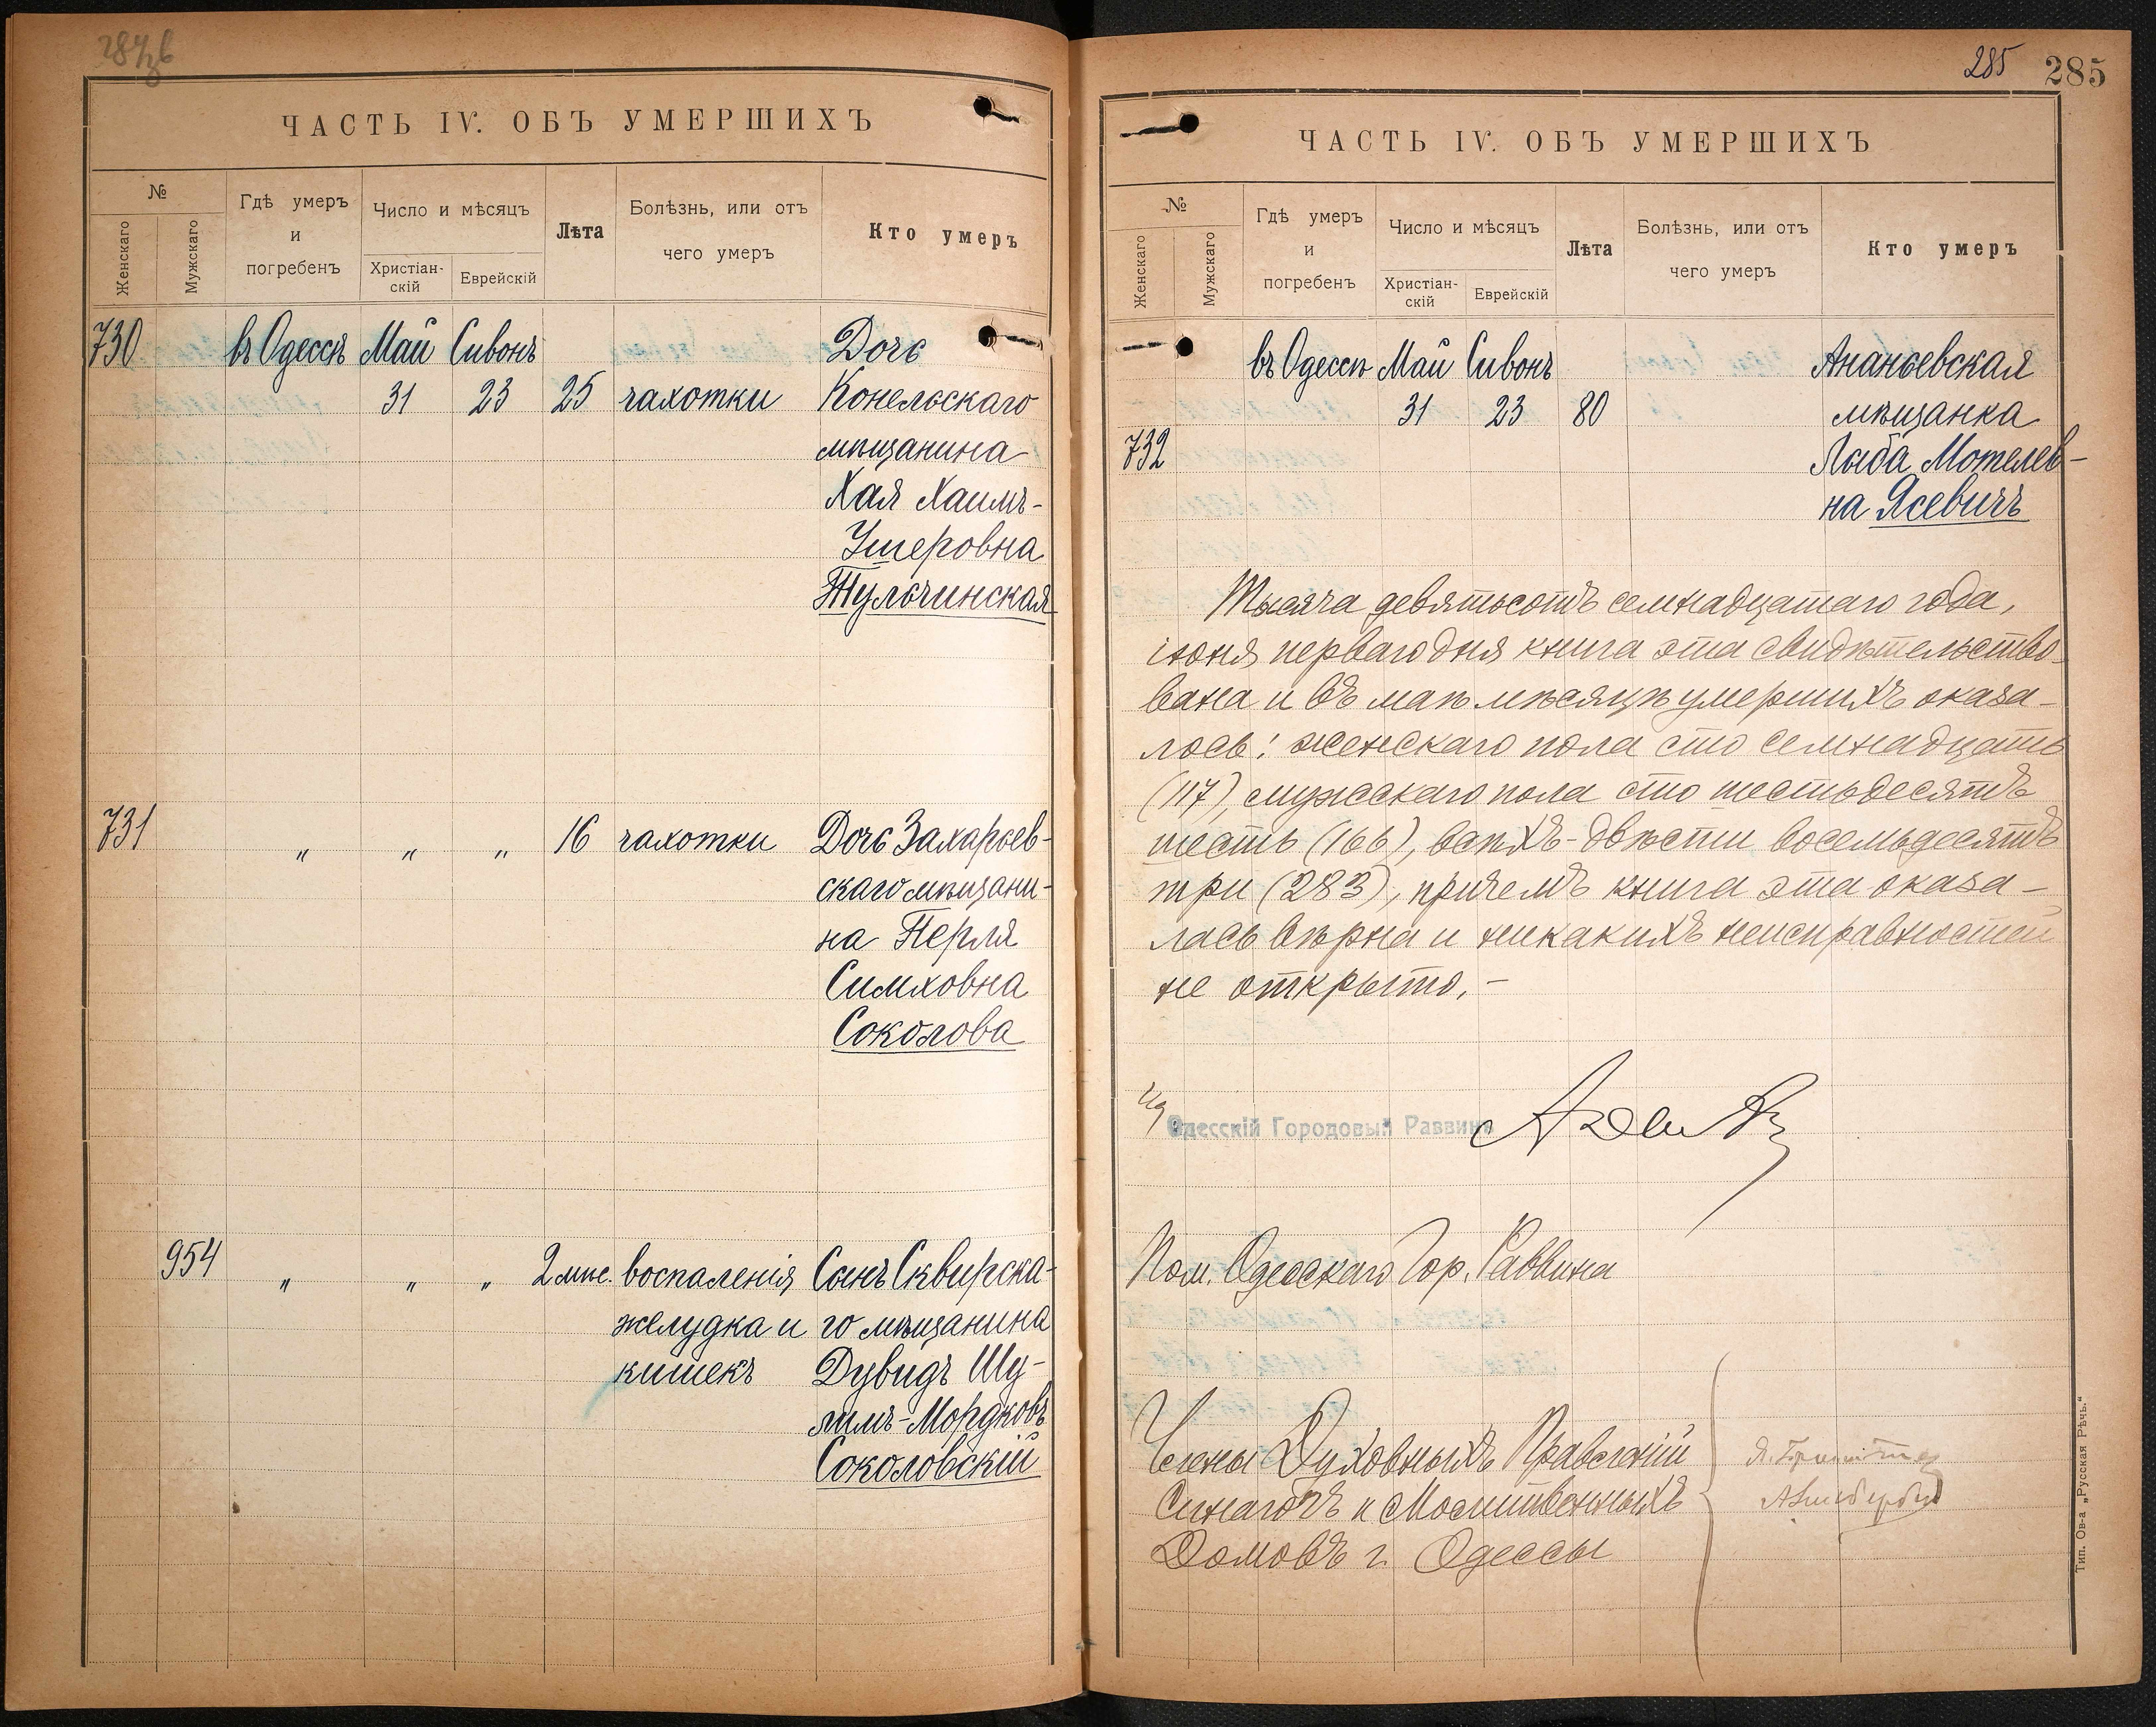 ЧАСТЬ IV. ОБЪ УМЕРШИХЪ
№
Женскаго
Мужскаго
Гдѣ умеръ
и
погребенъ
Число и мѣсяцъ
Христіан-
скій
Еврейскій
Лѣта
Болѣзнь, или отъ
чего умеръ
Кто умеръ
730 въ Одессѣ Май Сивонъ Дочь
31 23 25 чахотки Конельскаго
мѣщанина
Хая Хаимъ-
Ушеровна
Тульчинская
731 " " " 16 чахотки Дочь Захарьев-
скаго мѣщани-
на Перля
Симховна
Соколова
954 " " " 2 мѣс. воспаленія Сынъ Сквирска-
желудка и го мѣщанина
кишекъ Дувидъ Шу-
лимъ-Мордковъ
Соколовскій
285 285
ЧАСТЬ IV. ОБЪ УМЕРШИХЪ
№
Женскаго
Мужскаго
Гдѣ умеръ
и
погребенъ
Число и мѣсяцъ
Христіан-
скій
Еврейскій
Лѣта
Болѣзнь, или отъ
чего умеръ
Кто умеръ
въ Одессѣ Май Сивонъ Ананьевская
31 23 80 мѣщанка
732 Лыба Мотелев-
на Ясевичъ
Тысяча девятьсотъ семнадцатаго года,
іюня перваго дня книга эта свидѣтельство-
вана и въ маѣ мѣсяцѣ умершихъ оказа-
лось: женскаго пола сто семнадцать
(117), мужскаго пола сто шестьдесятъ
шесть (166), всѣхъ-двѣсти восемьдесятъ
три (283), причемъ книга эта оказа-
лась вѣрна и никакихъ неисправностей
не открыто.-
Одесскій Городовый Раввинъ
Пом. Одесскаго Гор. Раввина
Члены Духовныхъ Правленій
Синагогъ и Молитвенныхъ
Домовъ г. Одессы
Тип. Ов-а „Русская Рѣчь."